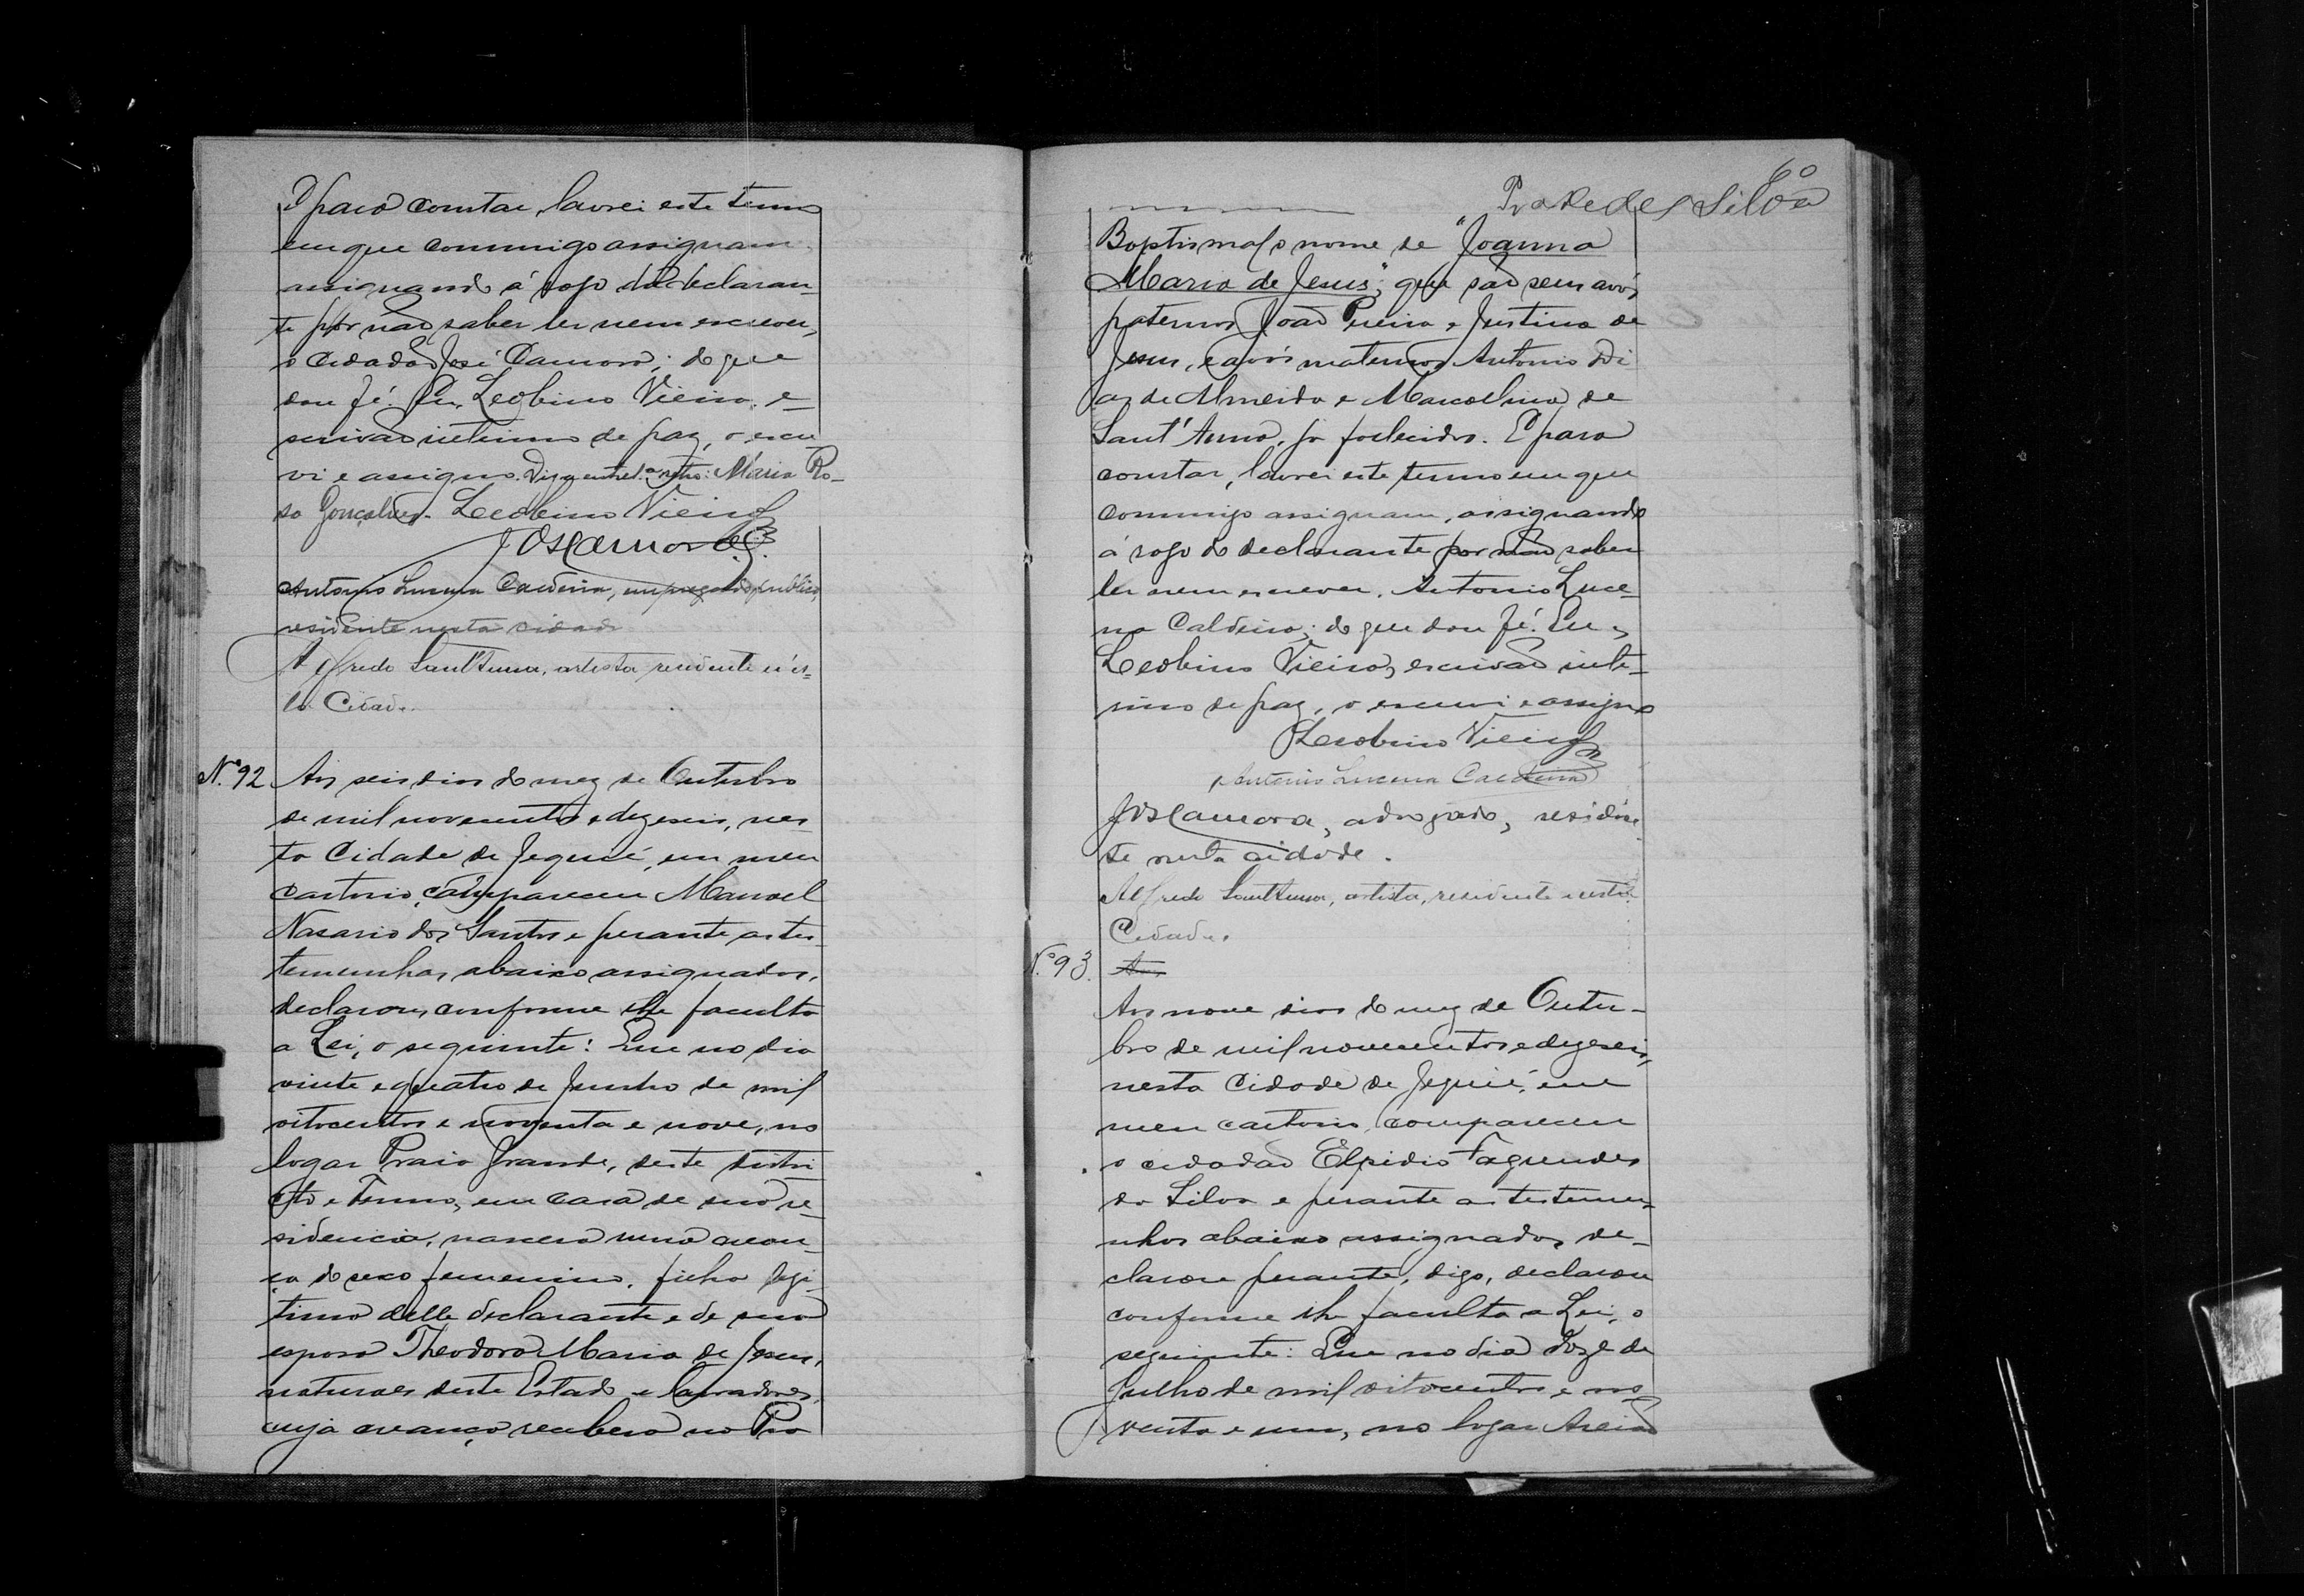 E para constar, lavrei este termo
em que commigo assignam
assignando á rogo do declaran-
te por não saber ler nem escrever,
o cidadão José Camora; do que
dou fé. Eu, Leobino Vieira, e-
scrivão interino de paz, o escre-
vi e assigno. Digo entrelª retro: Maria Ro-
sa Gonçalves. Leobino Vieira
Jos Camora
Antonio Lucena Caldeira, empregado publico,
residente nesta cidade
Alfredo Sant'Anna, artista, residente n'es-
ta Cidade.
N.º 92 Aos seis dias do mez de Outubro
de mil novecentos e dezeseis, nes-
ta Cidade de Jequié, em meu
Cartorio, compareceu Manoel
Nasario dos Santos e perante as tes-
temunhas abaixo assignadas,
declarou, conforme lhe faculta
a Lei, o seguinte: Que no dia
vinte e quatro de Junho de mil
oitocentos e noventa e nove, no
logar Praia Grande, deste distri-
cto e Termo, em casa de sua re-
sidencia, nascera uma crean-
ça do sexo femenino, filha legi-
tima delle declarante e de sua
esposa Theodora Maria de Jesus,
naturaes deste Estado e lavradores,
cuja creança recebera na Pia
60
Prade des Silva
Baptismal o nome de "Joanna
Maria de Jesus"; que são seus avós
paternos João Pereira e Justina de
Jesus, e avós maternos Antonio Di-
as de Almeida e Marcellina de
Sant'Anna, ja fallecidos. E para
constar, lavrei este termo em que
commigo assignam, assignando
á rogo do declarante por não saber
ler nem escrever, Antonio Luce-
na Caldeira; do que dou fé. Eu,
Leobino Vieira, escrivão inte-
rino de paz, o escrevi e assigno
Leobino Vieira
Antonio Lucena Caldeira
Jos Camora, advogado, residen-
te nesta cidade.
Alfredo Sant'Anna, artista, residente nesta
Cidade.
N.º 93. Aos
Aos nove dias do mez de Outu-
bro de mil novecentos e dezeseis,
nesta Cidade de Jequié, em
meu cartorio, compareceu
o cidadão Elpidio Fagundes
da Silva e perante as testemu-
nhas abaixo assignadas, de-
clarou perante, digo, declarou
conforme lhe faculta a Lei, o
seguinte: Que no dia doze de
Julho de mil oitocentos e no-
venta e um, no logar Areião